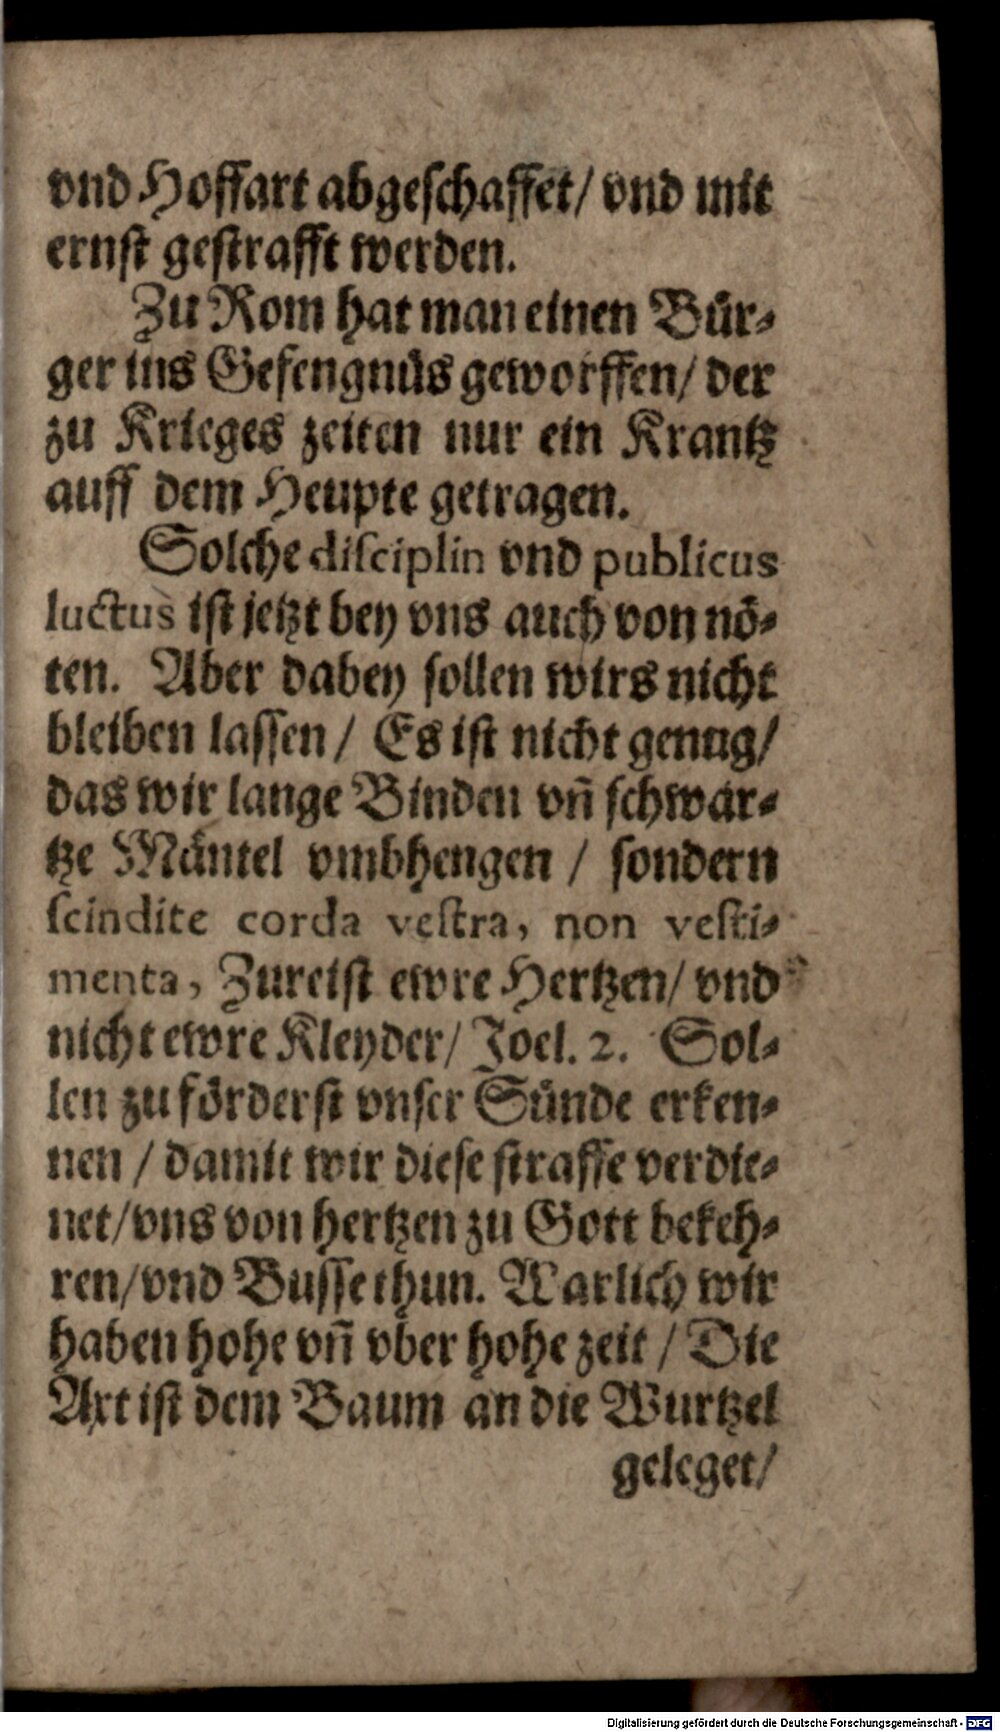 vnd Hoffart abgeſchaffet/ vnd mit
ernſt geſtrafft werden.
Zu Rom hat man einen Buͤr⸗
ger ins Gefengnuͤs geworffen/ der
zu Krieges zeiten nur ein Krantz
auff dem Heupte getragen.
Solche diſciplin vnd publicus
luctus iſt jetzt bey vns auch von noͤ⸗
ten. Aber dabey ſollen wirs nicht
bleiben laſſen / Es iſt nicht genug/
das wir lange Binden vn̄ ſchwar⸗
tze Maͤntel vmbhengen / ſondern
ſcindite corda veſtra, non veſti⸗
menta, Zureiſt ewre Hertzen/ vnd
nicht ewre Kleyder/ Joel. 2. Sol⸗
len zu foͤrderſt vnſer Suͤnde erken⸗
nen / damit wir dieſe ſtraffe verdie⸗
net/ vns von hertzen zu Gott bekeh⸗
ren/ vnd Buſſe thun. Warlich wir
haben hohe vn̄ vber hohe zeit / Die
Axt iſt dem Baum an die Wurtzel
geleget/
Digitalisierung gefördert durch die Deutsche Forschungsgemeinschaft - DFG